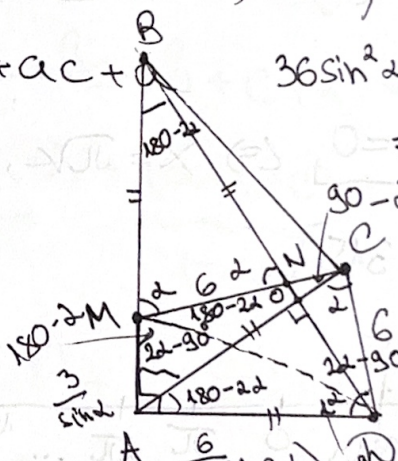 B
+ac+
36sin²2
180-2α
90-
N
C
6
α
180-2α
O
α
180-α
M
2α-90
6
2α-90
3
sinα
180-2α
α
A
6
D